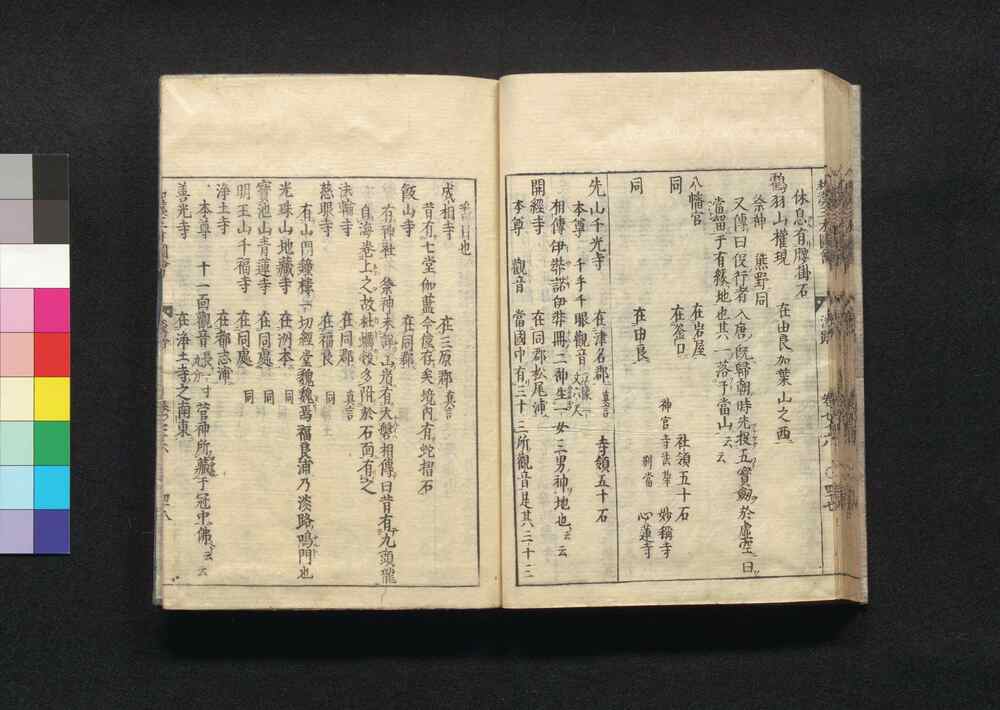 休息有腰掛石
鶴羽山權現　在由良加葉山之西
祭神　熊野同
又傳曰役行者入唐既歸朝時先投五寶劔於虛空曰
當留于有緣地也其一落于當山云云
八幡宮　在岩屋　社領五十石
神宮寺法華　妙福寺
同　在釜口　別當　心蓮寺
同　在由良
先山千光寺　在津名郡　真言　寺領五十石
本尊　千手千眼觀音
相傳伊弉諾伊弉冊二神生一女三男神地也云云
開經寺　在同郡松尾浦
本尊　觀音　當國中有三十三所觀音是其三十三
番目也
成相寺　在三原郡　真言
昔有七堂伽藍今僅存矣境内有蛇摺石
飯山寺　在同郡
有神社　祭神未詳山岩有大磐相傳曰昔有九頭龍
自海卷上之故牡蠣殼多附於石面有之
法輪寺　在同郡　真言
慈眼寺　在福良　同
有山門鐘樓一切經堂魏魏焉福良浦乃淡路鳴門也
光珠山地藏寺　在洲本　同
寶池山青蓮寺　在同處　同
明王山千福寺　在同處　同
淨土寺　在都志浦
本尊　十一面觀音　菅神所藏于冠中佛云云
善光寺　在淨土寺之南東